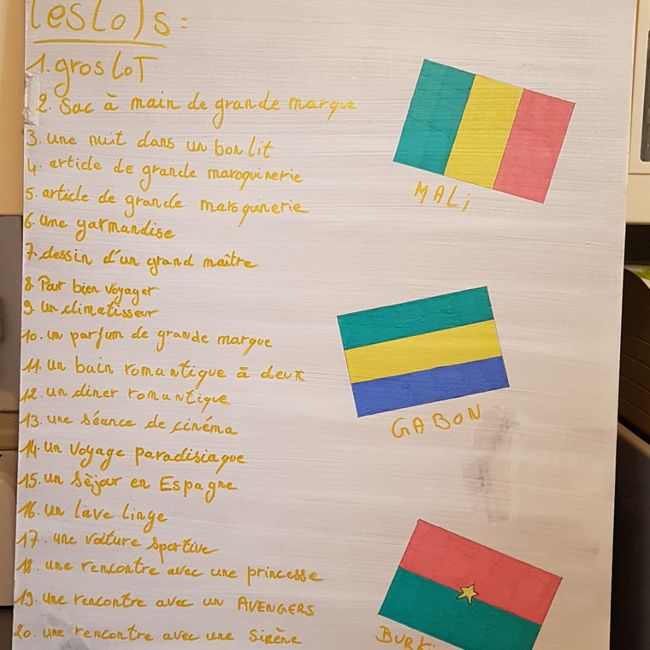 les Lots:
1. gros Lot
2. Sac à main de grande marque
3. une nuit dans un bon lit
4. article de grande maroquinerie
5. article de grande maroquinerie
6. une garmandise
7. dessin d'un grand maître
8. Pour bien voyager
9. Un climatisseur
10. un parfum de grande marque
11. un bain romantique à deux
12. un diner romantique
13. une séance de cinéma
14. un voyage paradisiaque
15. un séjour en Espagne
16. un lave linge
17. une voiture sportive
18. une rencontre avec une princesse
19. une rencontre avec un AVENGERS
20. une rencontre avec une Sirène
MALi
GABON
BURKi